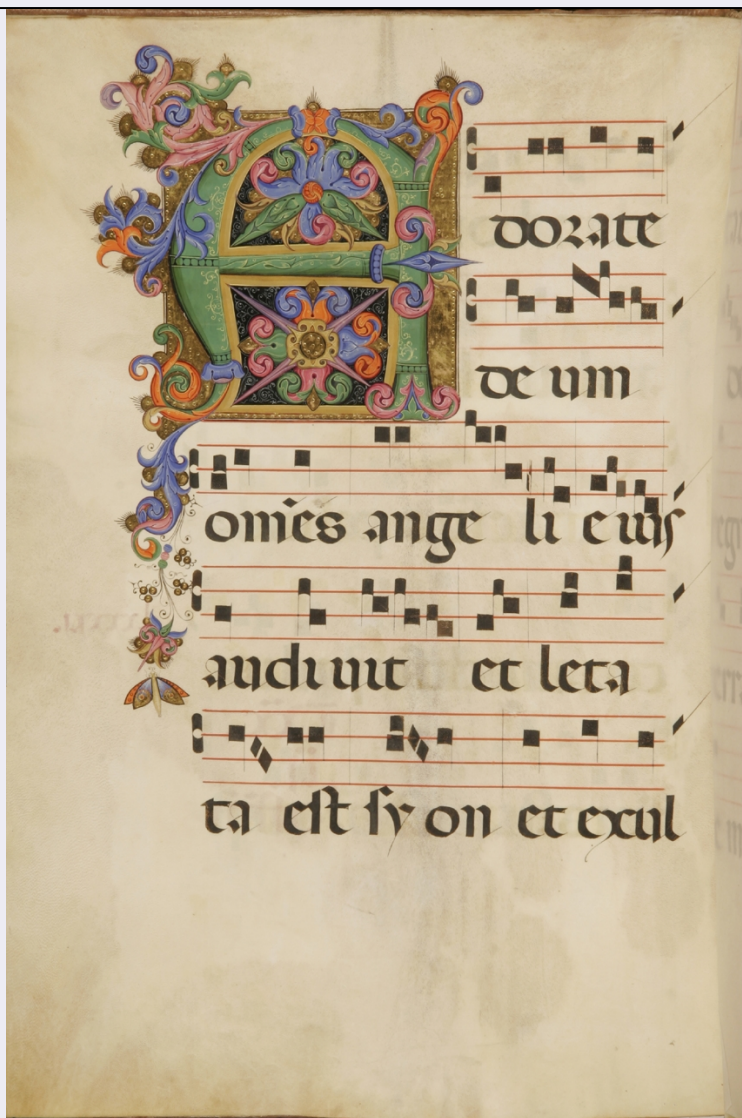 Adorate
de um
om̄es ange li e ius
audi uit et leta
ta est sy on et exul